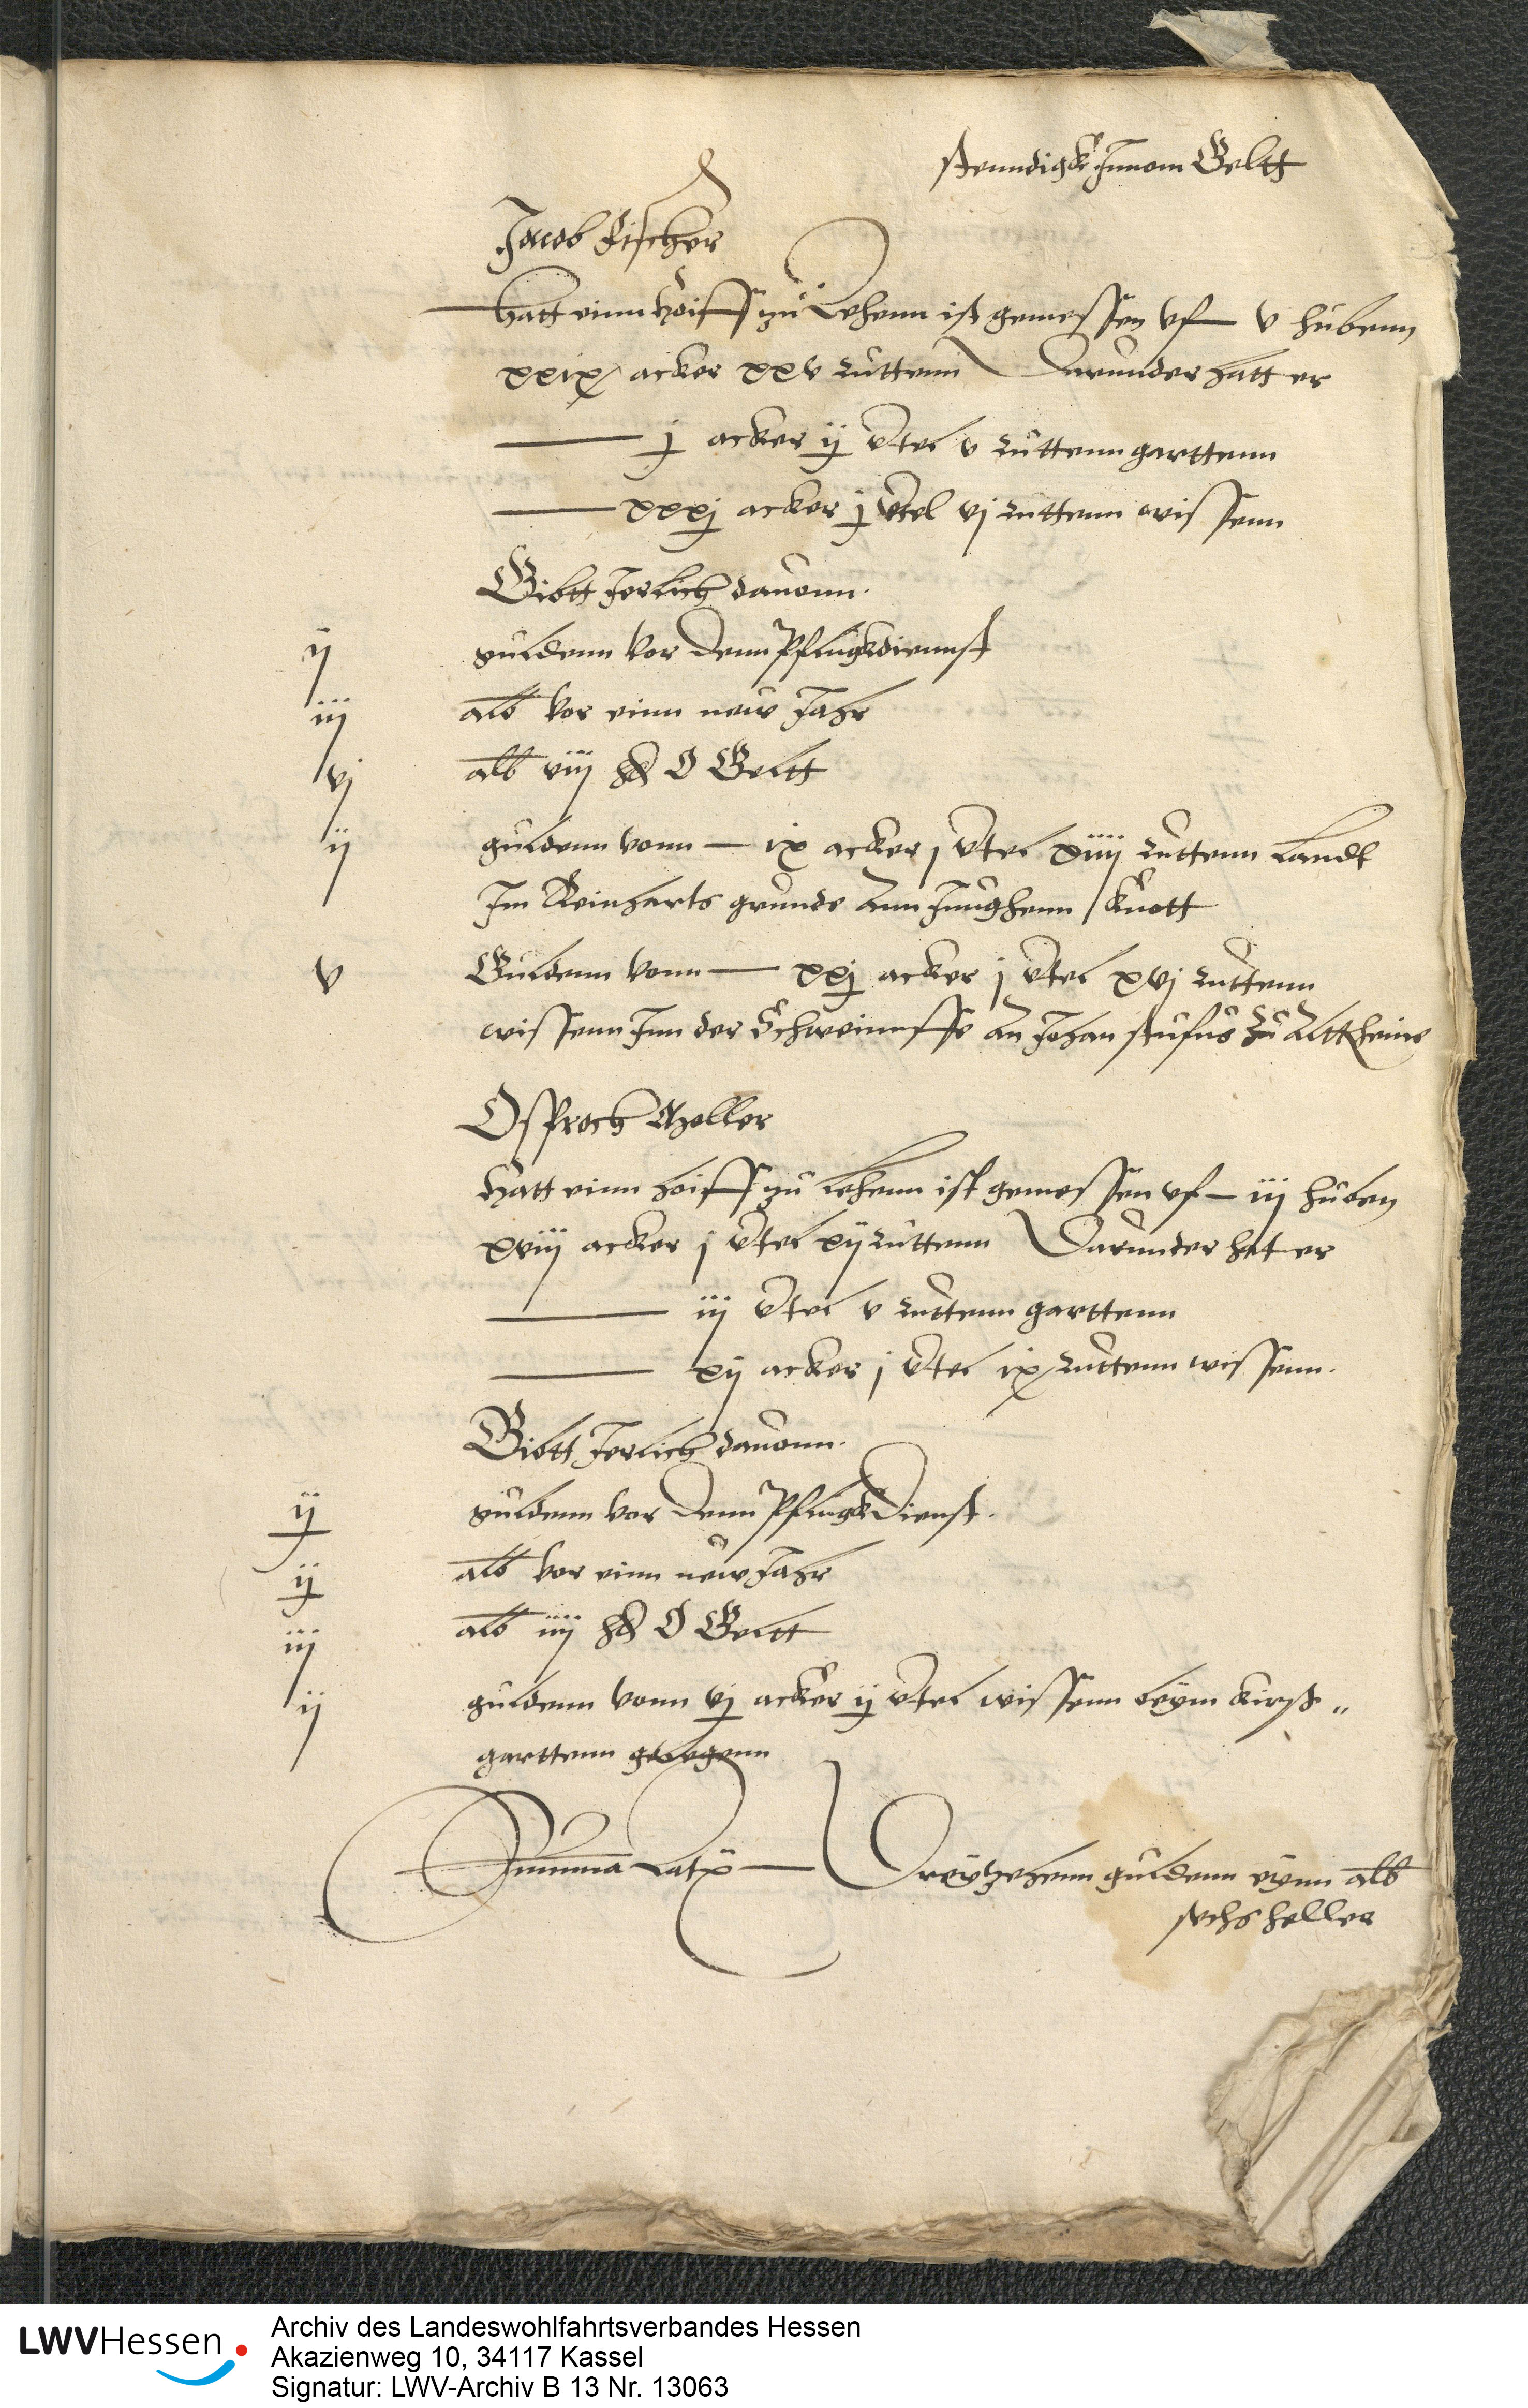 stenndigk Innom Geltt
Jacob Fischer
hatt einn hoiff zu Lehenn ist gemessen vf — v hubenn
xxix acker xxv ruttenn Darunder hatt er
— j acker ij v̂tel v ruttenn garttenn
— xxxj acker j v̂tel vj ruttenn wissenn
Gibtt Jerlich dauonn.
ij guldenn vor denn Pflugkdiennst
iij alb vor einn new Jahr
vj alb viij h O Geltt
ij guldenn vonn — ix acker j v̂tel xiiij ruttenn Landt
Im Reinharts grunde Ann Junghenn Knott
v Guldenn vonn — xxj acker j v̂tel xvj ruttenn
wissenn Inn der Schweinnsse An Johan stufus zu Altt heine
Ossroch Moller
Hatt einn hoiff zu Lehenn ist gemessen vf — iij huben
xviij acker j v̂tel xij ruttenn Darunder hat er
— iij v̂tel v ruttenn garttenn
— xij acker j v̂tel ix ruttenn wissenn.
Gibtt Jerlich dauonn.
ij guldenn vor denn Pflugkdienst.
ij alb vor einn new Jahr
iij alb iiij h O Geltt
ij guldenn vonn vj acker ij v̂tel wissenn beym kirss-
garttenn gelegenn
Summa Latx — Dreytzehenn guldenn eynn alb
sechs heller
LWVHessen
Archiv des Landeswohlfahrtsverbandes Hessen
Akazienweg 10, 34117 Kassel
Signatur: LWV-Archiv B 13 Nr. 13063